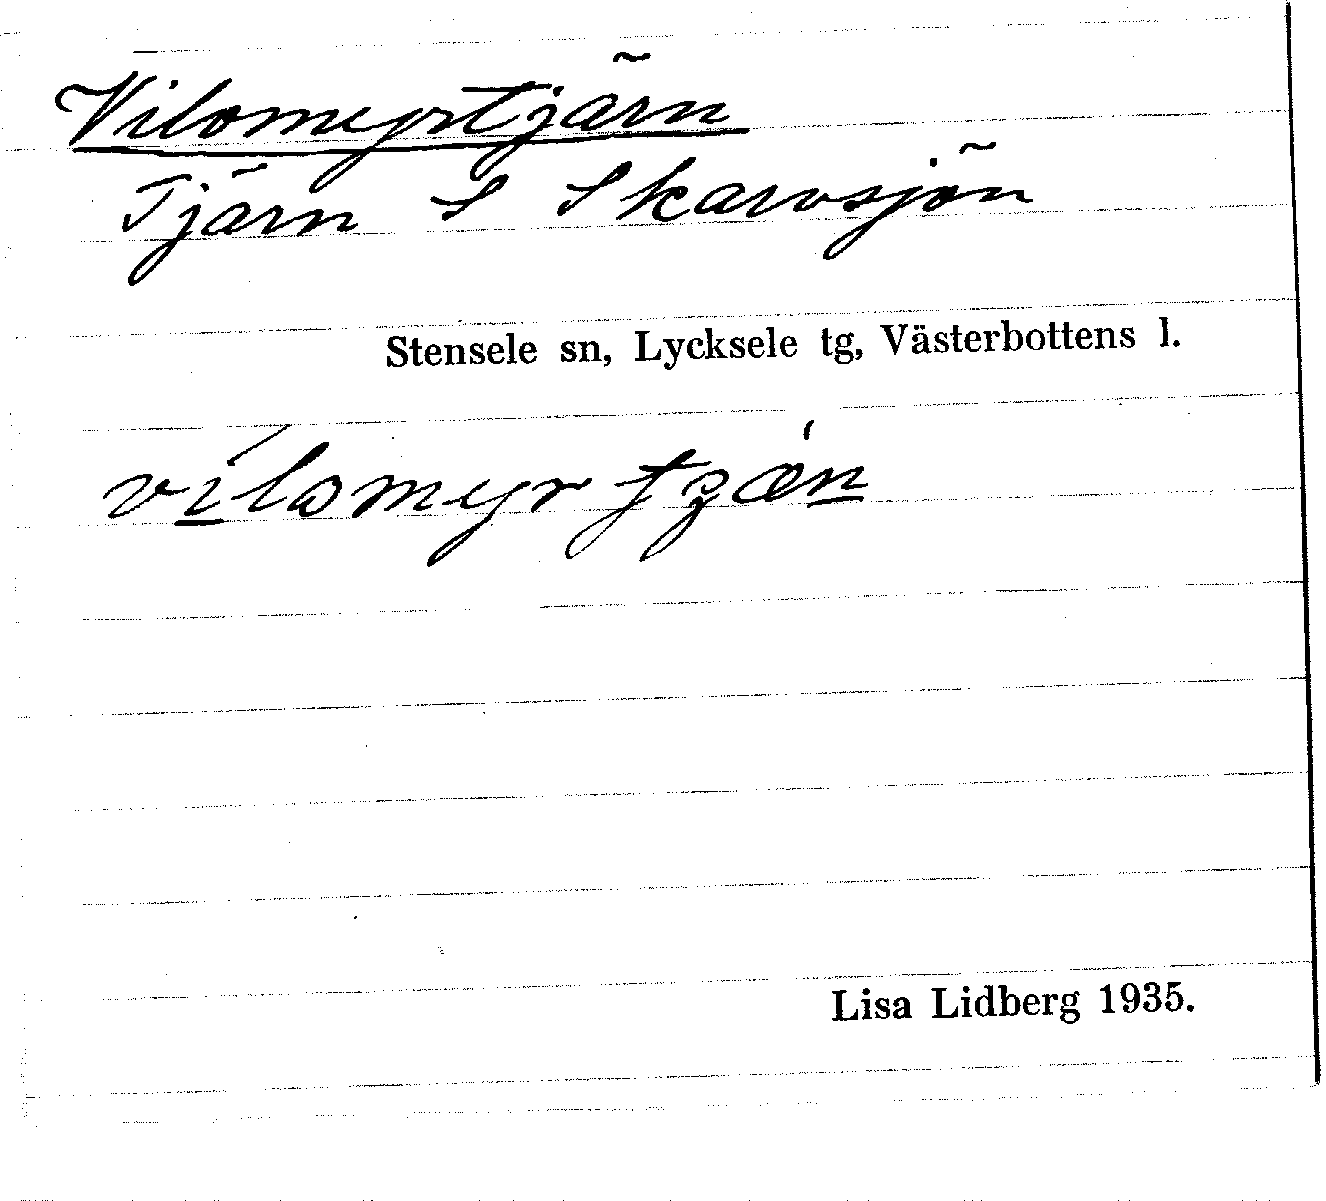 Vilomyrtjärn
Tjärn S Skarvsjön
Stensele sn, Lycksele tg, Västerbottens l.
Lisa Lidberg 1935.